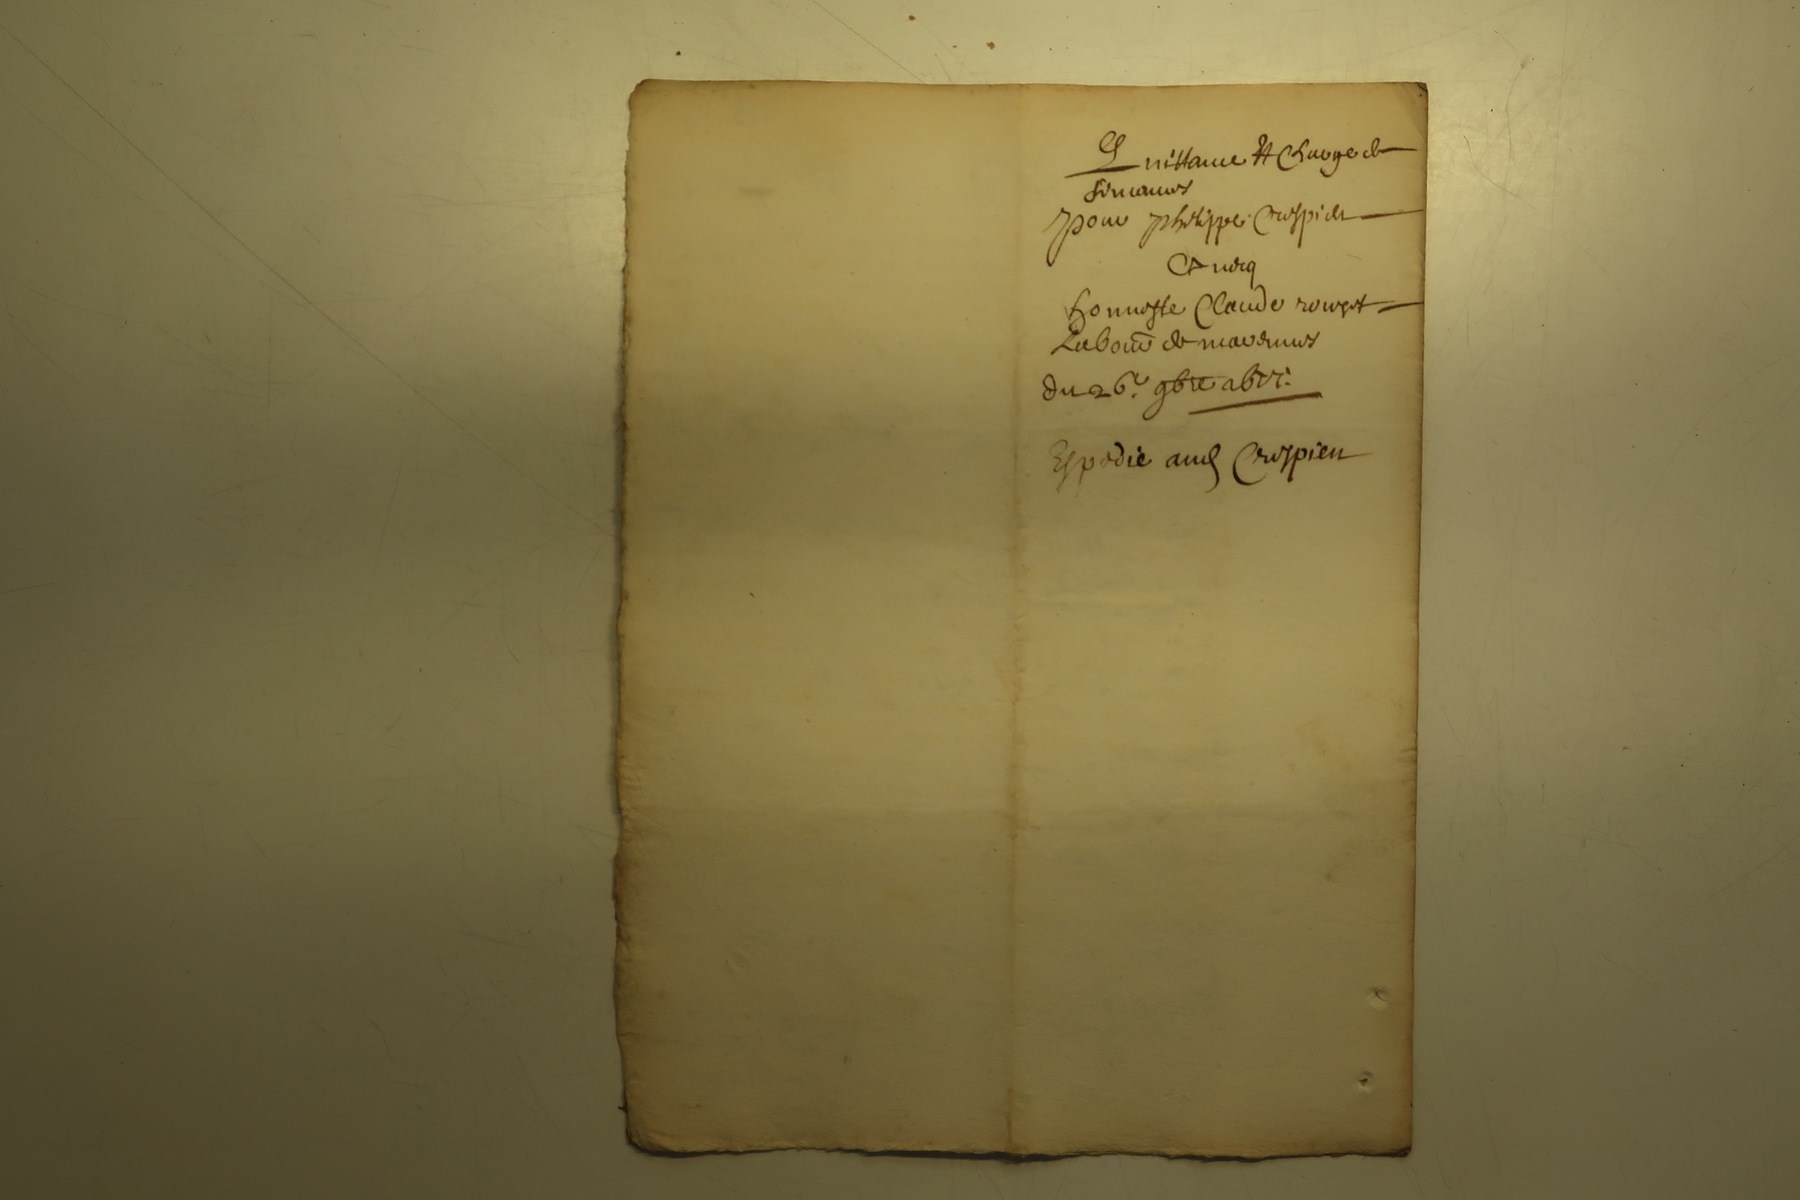 Quittance et Charge de
finances
pour philippe Crespien
Et
honneste Claude rouget
Labour de
du 26e. 9bre
Expedie aud Crespien